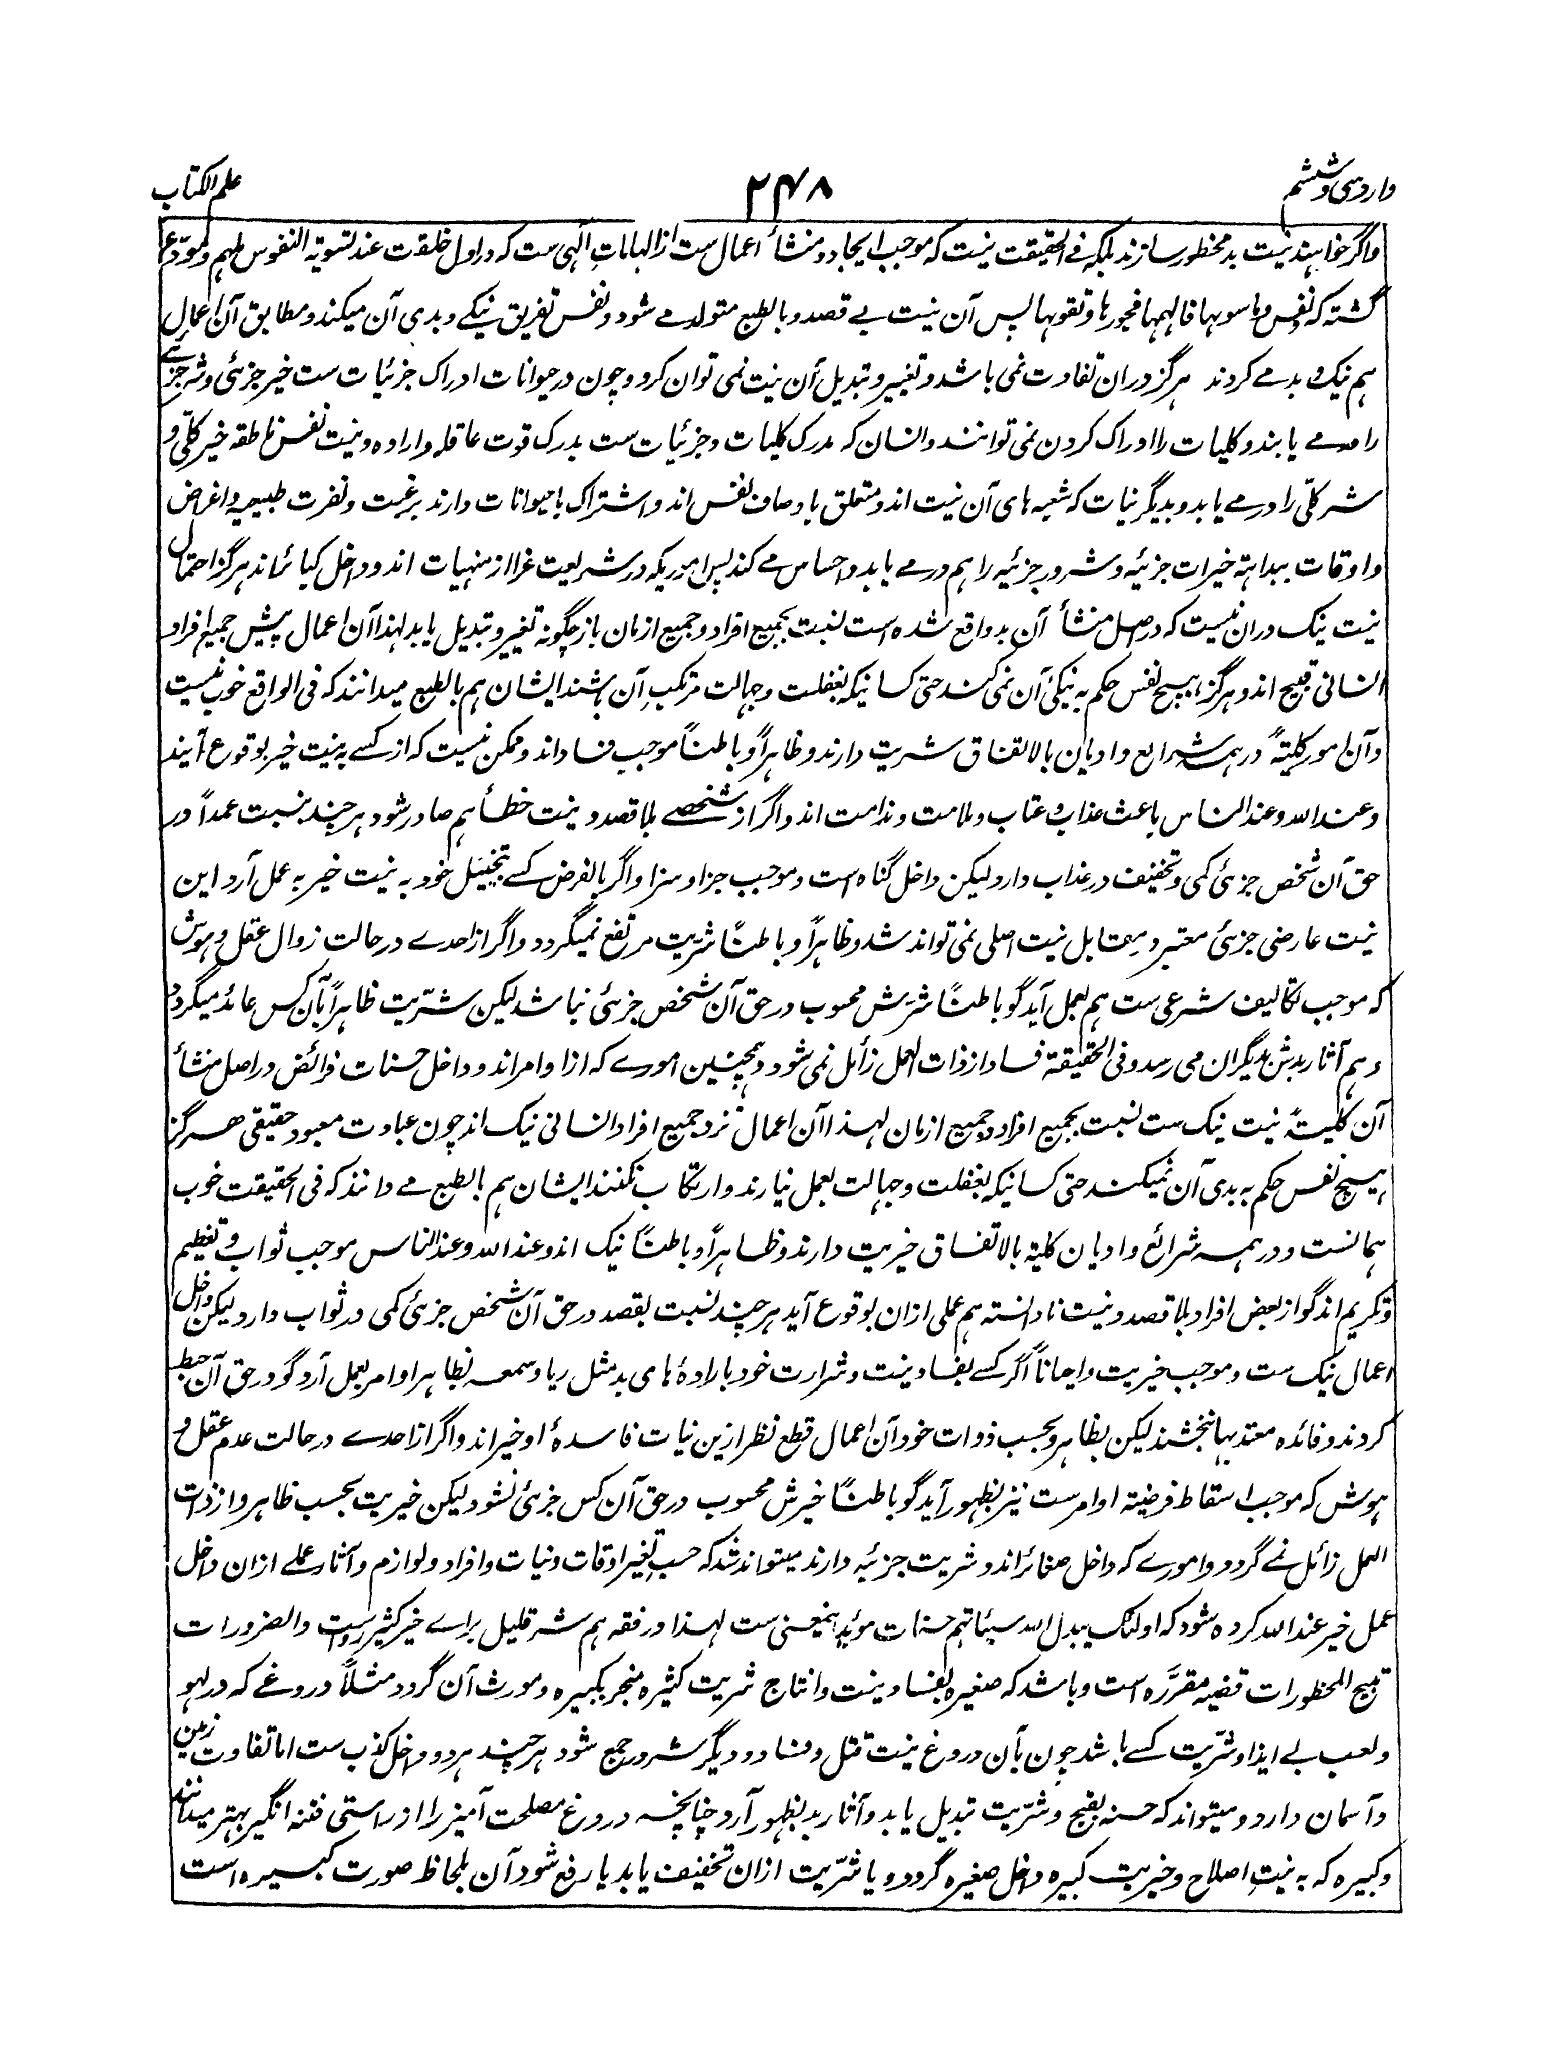 وارد سی و ششم
۲۴۸
علم الکتاب
و اگر خواهند نیت بد محظور سازند بلکه فی الحقیقت نیت که موجب ایجاد و منشأ اعمال ست از الهامات الٰهی ست که در اول خلقت عند تسویة النفوس ملهم و مودع
گشته که و نفس و ما سوٰیها فالهمها فجورها و تقوٰیها پس آن نیت بے قصد و بالطبع متولد مے شود و نفس تفریق نیکے و بدی آن میکند و مطابق آن اعمال
هم نیک و بد مے کردند هرگز دران تفاوت نمی باشد و تغییر و تبدیل آن نیت نمی توان کرد و چون در حیوانات ادراک جزئیات ست خیر جزئی و شر جزئے
را در مے یابند و کلیات را ادراک کردن نمی توانند و انسان که مدرک کلیات و جزئیات ست بدرک قوت عاقله و اراده و نیت نفس ناطقه خیر کلّی و
شر کلّی را در مے یابد و بدیگر نیات که شعبه های آن نیت اند و متعلق باوصاف نفس اند و اشتراک باحیوانات دارند برغبت و نفرت طبیعیه و اغراض
و اوقات ببداهة خیرات جزئیه و شرور جزئیه را هم در مے یابد و احساس مے کند پس اموریکه در شریعت غرا از منهیات اند و داخل کبائر اند هرگز احتمال
نیت نیک دران نیست که در اصل منشأ آن بد واقع شده است نسبت بجمیع افراد و جمیع ازمان باز چگونه تغییر و تبدیل یابد لهذا آن اعمال پیش جمیع افراد
انسانی قبیح اند و هرگز هیچ نفس حکم به نیکی آن نمی کند حتی کسانیکه بغفلت و جهالت مرتکب آن باشند ایشان هم بالطبع میدانند که فی الواقع خوب نیست
و آن امور کلیةً در همه شرایع و ادیان بالاتفاق شریت دارند و ظاهراً و باطناً موجب فساد اند و ممکن نیست که از کسے به نیت خیر بوقوع آیند
و عند الله و عند الناس باعث عذاب و عتاب و ملامت و ندامت اند و اگر از شخصے بلا قصد و نیت خطأ هم صادر شود هر چند نسبت عمداً در
حق آن شخص جزئی کمی و تخفیف در عذاب دارد لیکن داخل گناه است و موجب جزا و سزا و اگر بالفرض کسے بتخییل خود به نیت خیر به عمل آرد این
نیت عارضی جزئی معتبر و مقابل نیت اصلی نمی تواند شد و ظاهراً و باطناً شریت مرتفع نمیگردد و اگر از احدے در حالت زوال عقل و هوش
که موجب تکالیف شرعی ست هم بعمل آید گو باطناً شرّش محسوب در حق آن شخص جزئی نباشد لیکن شرّیت ظاهراً بآن کس عائد میگردد
و هم آثار بدش بدیگران می رسد و فی الحقیقة فساد از ذات العمل زائل نمی شود و همچنین امورے که از اوامر اند و داخل حسنات فرائض در اصل منشأ
آن کلیتہً نیت نیک ست نسبت بجمیع افراد و جمیع ازمان لهذا آن اعمال نزد جمیع افراد انسانی نیک اند چون عبادت معبود حقیقی هرگز
هیچ نفس حکم به بدی آن نمیکند حتی کسانیکه بغفلت و جهالت بعمل نیارند و ارتکاب نکنند ایشان هم بالطبع مے دانند که فی الحقیقت خوب
همانست و در همه شرائع و ادیان کلیة بالاتفاق خیریت دارند و ظاهراً و باطناً نیک اند و عند الله و عند الناس موجب ثواب و تعظیم
و تکریم اند گو از بعض افراد بلا قصد و نیت نادانسته هم عملی ازان بوقوع آید هر چند نسبت بقصد در حق آن شخص جزئی کمی در ثواب دارد لیکن داخل
اعمال نیک ست و موجب خیریت و احیاناً اگر کسے بفساد نیت و شرارت خود بارادهٔ های بد مثل ریا و سمعه بظاهر اوامر بعمل آرد گو در حق آن حبط
کردند و فائده معتد بها نبخشند لیکن بظاهر و بحسب ذوات خود آن اعمال قطع نظر ازین نیات فاسدهٔ او خیر اند و اگر از احدے در حالت عدم عقل و
هوش که موجب اسقاط فرضیته اوامر ست نیز بظهور آید گو باطناً خیرش محسوب در حق آن کس جزئی نشود لیکن خیریت بحسب ظاهر و از ذات
العمل زائل نمے گردد و امورے که داخل صغائر اند و شریت جزئیه دارند میتواند شد که حسب تغیر اوقات و نیات و افراد و لوازم و آثار عملے ازان داخل
عمل خیر عند الله کرده شود که اولئک یبدل الله سیئاتهم حسنات موئد همینمعنی ست لهذا در فقه هم شر قلیل براے خیر کثیر رواست و الضرورات
تبیح المحظورات قضیه مقرّره است و باشد که صغیره بفساد نیت و انتاج شریت کثیره منجر بکبیره و مورث آن گردد مثلاً دروغے که در لهو
و لعب بے ایذا و شرّیت کسے باشد چون بآن دروغ نیت قتل و فساد و دیگر شرور جمع شود هر چند هر دو داخل کذب ست اما تفاوت زمین
و آسمان دارد و میتواند که حسنه بقبح و شرّیت تبدیل یابد و آثار بد بظهور آرد چنانچه دروغ مصلحت آمیز را از راستی فتنه انگیز بهتر میدانند
و کبیره که به نیتِ اصلاح و خیریت کبیره داخل صغیره گردد و یا شرّیت ازان تخفیف یابد یا رفع شود آن بلحاظ صورت کبیره است